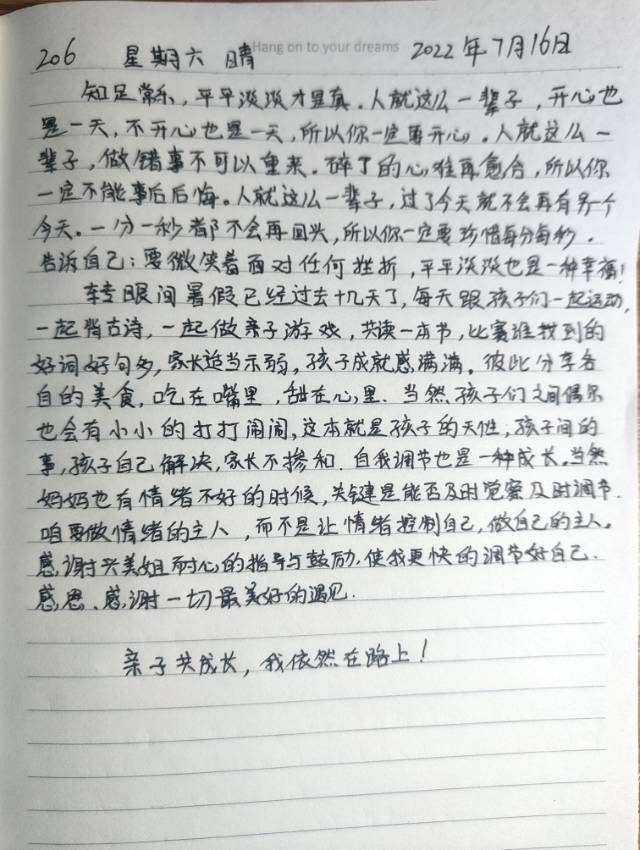 Hang on to your dreams
206 星期六 晴 2022年7月16日
知足常乐，平平淡淡才是真。人就这么一辈子，开心也
是一天，不开心也是一天，所以你一定要开心。人就这么一
辈子，做错事不可以重来。碎了的心难再愈合，所以你
一定不能事后后悔。人就这么一辈子，过了今天就不会再有另一个
今天。一分一秒都不会再回头，所以你一定要珍惜每分每秒。
告诉自己：要微笑着面对任何挫折，平平淡淡也是一种幸福！
转眼间暑假已经过去十几天了，每天跟孩子们一起运动，
一起背古诗，一起做亲子游戏，共读一本书，比赛谁找到的
好词好句多，家长适当示弱，孩子成就感满满。彼此分享各
自的美食，吃在嘴里，甜在心里。当然孩子们之间偶尔
也会有小小的打打闹闹，这本就是孩子的天性，孩子间的
事，孩子自己解决，家长不掺和.自我调节也是一种成长。当然
妈妈也有情绪不好的时候，关键是能否及时觉察及时调节.
咱要做情绪的主人，而不是让情绪控制自己，做自己的主人。
感谢兴美姐耐心的指导与鼓励，使我更快的调节好自己.
感恩、感谢一切最美好的遇见.
亲子共成长，我依然在路上！